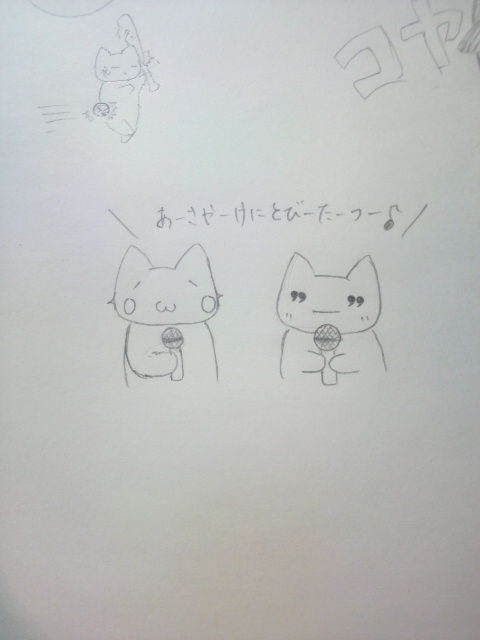 コヤ
あーさやーけにとびーたーつー♪